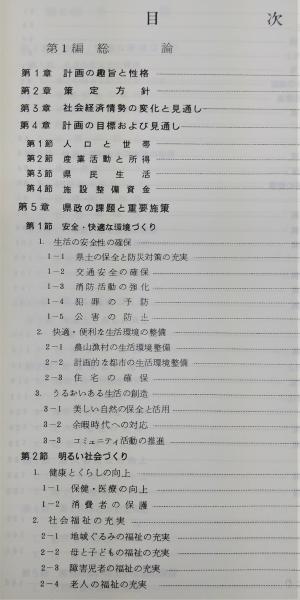 目次
第1編 総論
第1章 計画の趣旨と性格
第2章 策定方針
第3章 社会経済情勢の変化と見通し
第4章 計画の目標および見通し
第1節 人口と世帯
第2節 産業活動と所得
第3節 県民生活
第4節 施設整備資金
第5章 県政の課題と重要施策
第1節 安全・快適な環境づくり
1. 生活の安全性の確保
1-1 県土の保全と防災対策の充実
1-2 交通安全の確保
1-3 消防活動の強化
1-4 犯罪の予防
1-5 公害の防止
2. 快適・便利な生活環境の整備
2-1 農山漁村の生活環境整備
2-2 計画的な都市の生活環境整備
2-3 住宅の確保
3. うるおいある生活の創造
3-1 美しい自然の保全と活用
3-2 余暇時代への対応
3-3 コミュニティ活動の推進
第2節 明るい社会づくり
1. 健康とくらしの向上
1-1 保健・医療の向上
1-2 消費者の保護
2. 社会福祉の充実
2-1 地域ぐるみの福祉の充実
2-2 母と子どもの福祉の充実
2-3 障害児者の福祉の充実
2-4 老人の福祉の充実